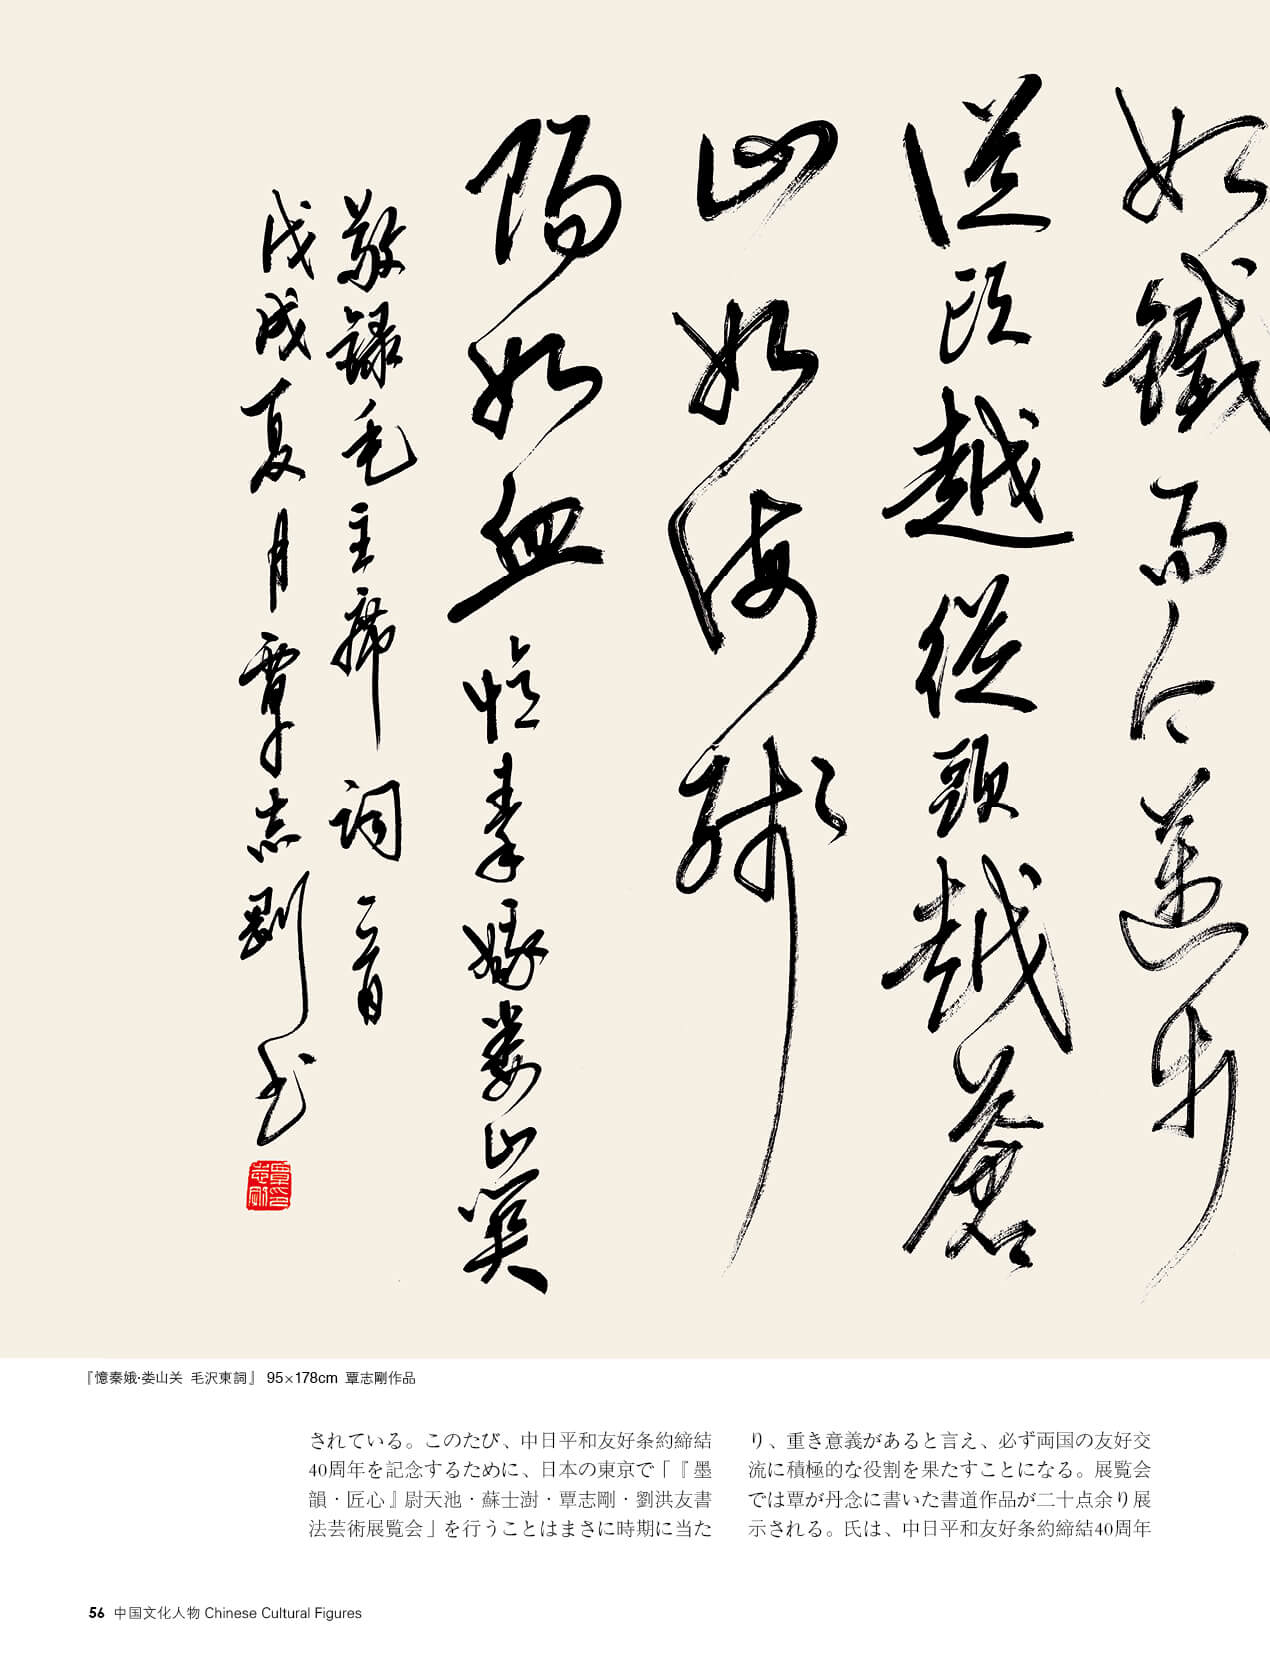 如鐵而今邁步
從頭越從頭越蒼
山如海殘
陽如血憶秦娥娄山関
敬錄毛主席詞一首
戊戌夏月覃志剛书
覃印志剛
『憶秦娥·娄山关 毛沢東詞』 95×178cm 覃志剛作品
されている。このたび、中日平和友好条約締結
40周年を記念するために、日本の東京で「『墨
韻・匠心』尉天池・蘇士澍・覃志剛・劉洪友書
法芸術展覧会」を行うことはまさに時期に当た
り、重き意義があると言え、必ず両国の友好交
流に積極的な役割を果たすことになる。展覧会
では覃が丹念に書いた書道作品が二十点余り展
示される。氏は、中日平和友好条約締結40周年
56 中国文化人物 Chinese Cultural Figures